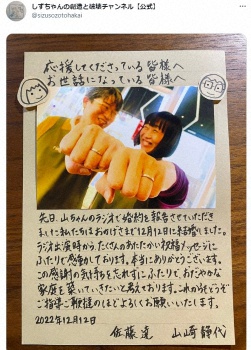 しずちゃんの創造と破壊チャンネル【公式】
@sizusozotohakai
応援してくださっている皆様へ
お世話になっている皆様へ
先日、山ちゃんのラジオで婚約を報告させていただき
ました私たちはおかげさまで12月12日に結婚しました。
ラジオ出演時から、たくさんのあたたかい祝福メッセージに
ふたりで感動しております。本当にありがとうございます。
この感謝の気持ちを忘れずに、ふたりで、おだやかな
家庭を築いていきたいと思っております。これからもどうぞ
ご指導ご鞭撻のほどよろしくお願いいたします。
2022年12月12日
佐藤達 山崎静代